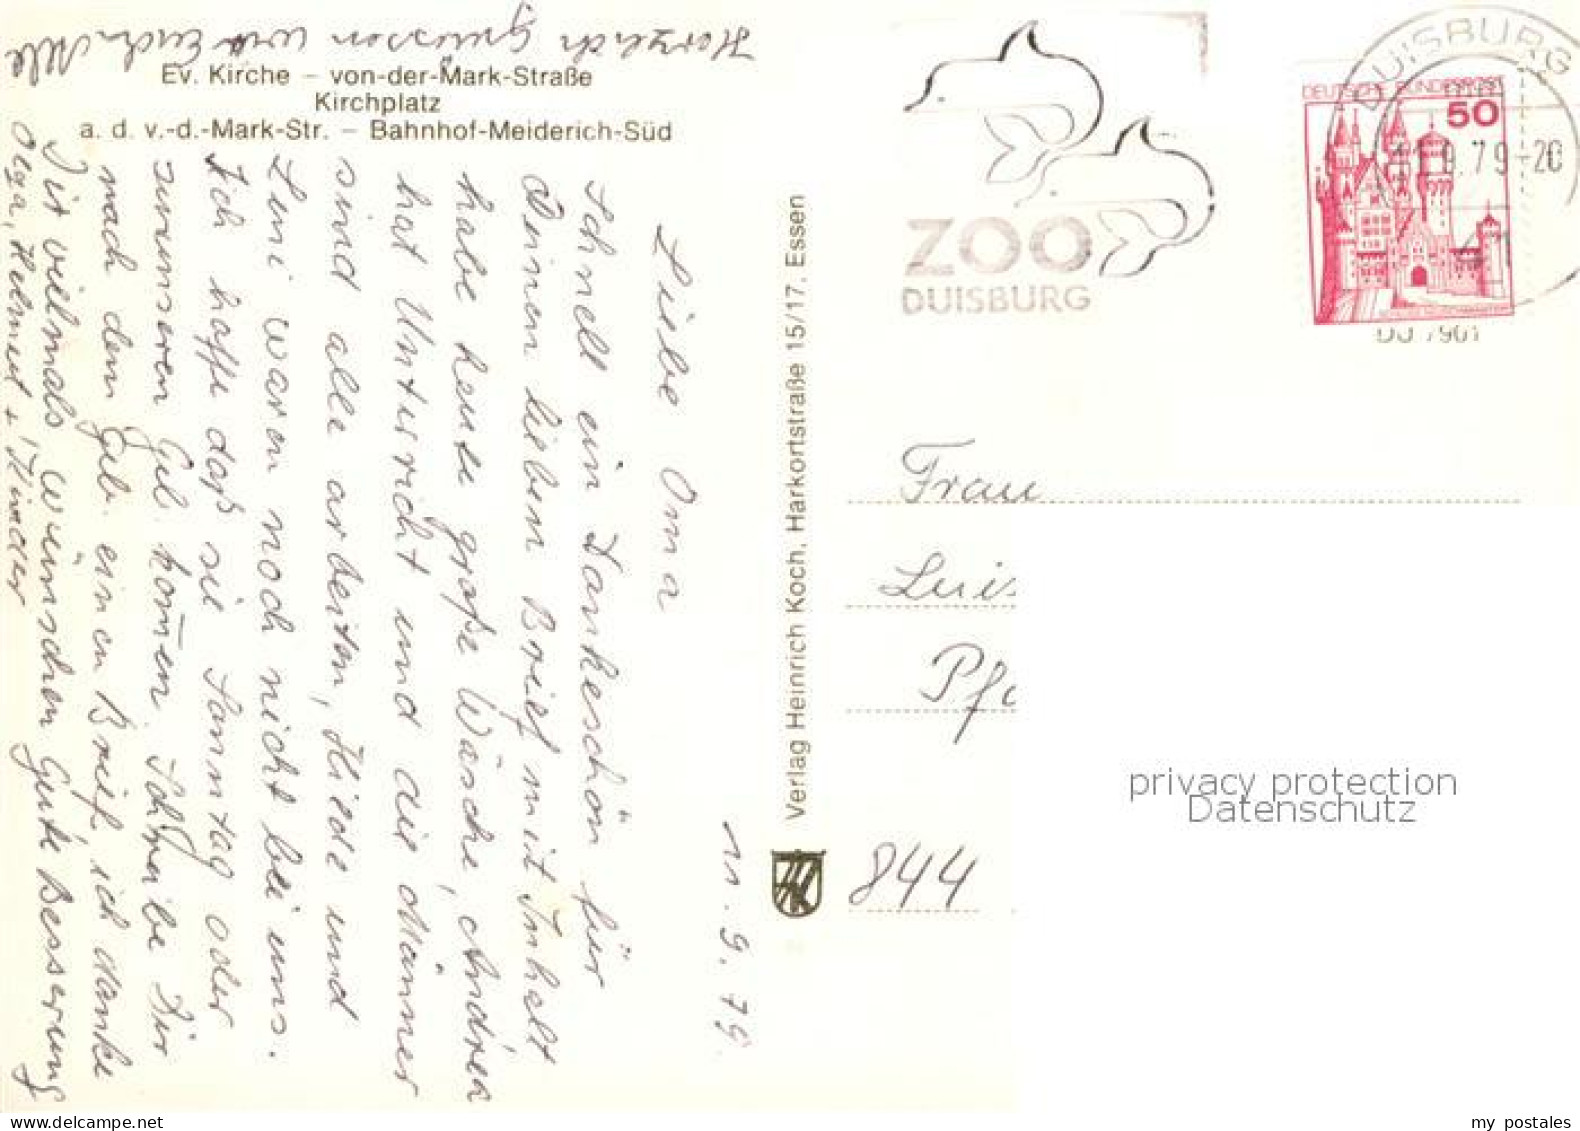 Ev. Kirche – von-der-Mark-Straße
Kirchplatz
a. d. v.-d.-Mark-Str. – Bahnhof-Meiderich-Süd
11. 9. 79.
Liebe Oma
Schnell ein Dankeschön für
Deinen lieben Brief mit Inhalt
habe heute große Wäsche, Andrea
hat Unterricht und die Männer
sind alle arbeiten, Heide und
Leni waren noch nicht bei uns.
Ich hoffe daß sie Samstag oder
zu unseren Geb. kom̄en. Schreibe Dir
nach dem Geb. einen Brief, ich danke
Dir vielmals wünschen Gute Besserung
Herzlich grüssen wir Euch Alle
Olga, Helmut + Kinder
Verlag Heinrich Koch, Harkortstraße 15/17, Essen
ZOO
DUISBURG
DUISBURG
11.9.79-20
41
DEUTSCHE BUNDESPOST
50
Frau
Luis
Pfa
844
privacy protection
Datenschutz
my postales